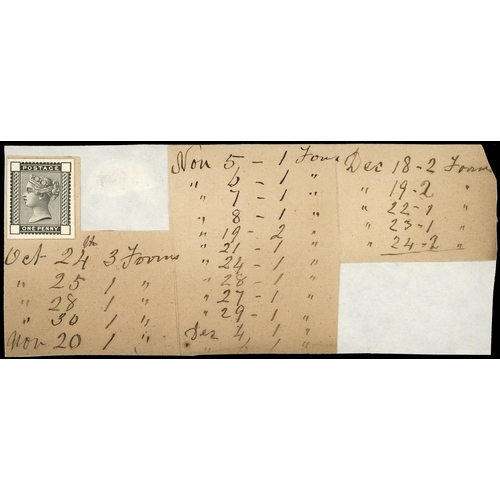 POSTAGE
ONE PENNY
Oct 24th 3 Forms
" 25 1 "
" 28 1 "
" 30 1 "
Nov 20 1 "
Nov 5 - 1 Form
" 6 - 1 "
" 7 - 1 "
" 8 - 1 "
" 19 - 2 "
" 21 - 1 "
" 24 - 1 "
" 28 - 1 "
" 27 - 1 "
" 29 - 1 "
Dec 4, 1 "
Dec 18 - 2 Forms
" 19 - 2 "
" 22 - 1 "
" 23 - 1 "
" 24 - 2 "